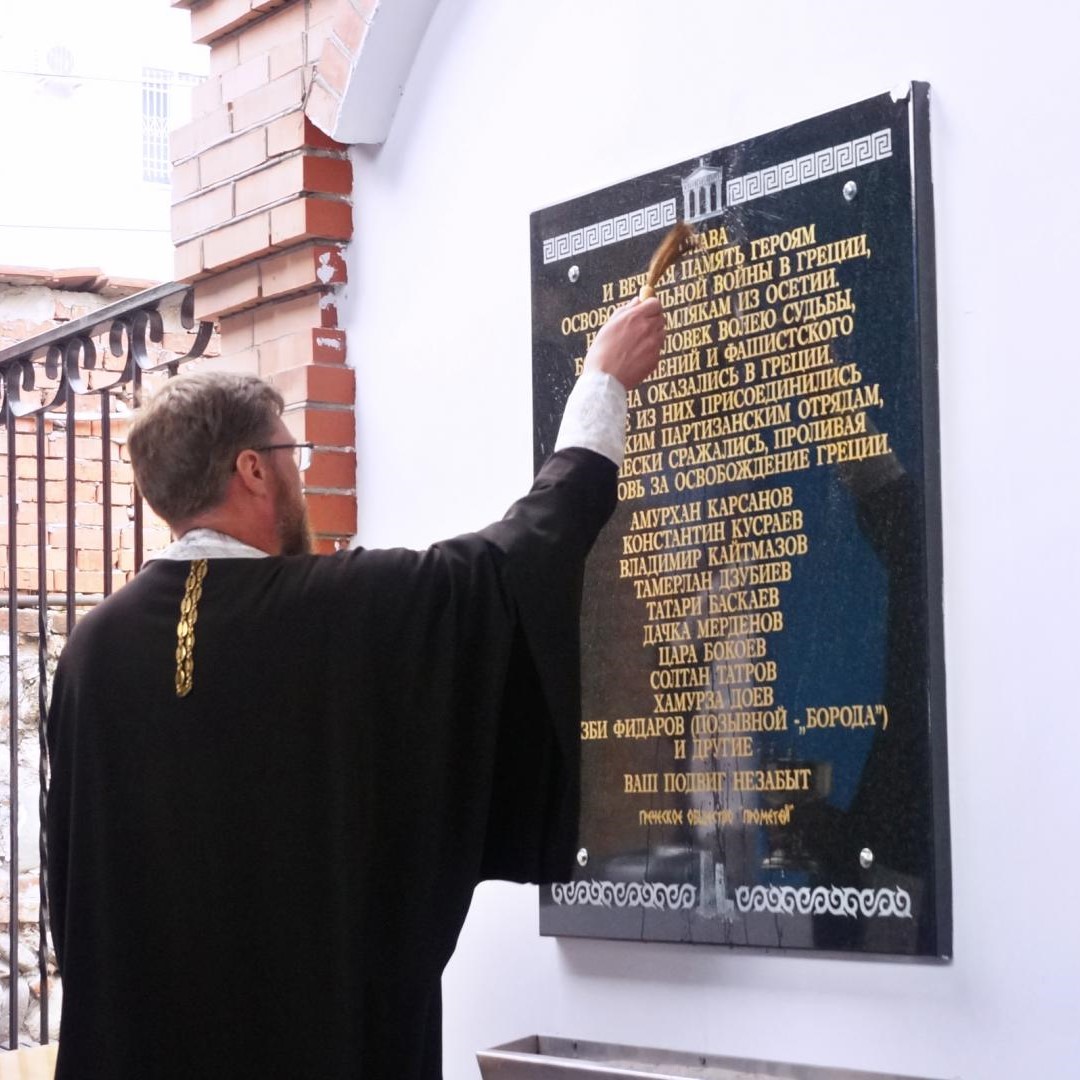 И ПАМЯТЬ ГЕРОЯМ
ВОЙНЫ В ГРЕЦИИ,
ИЗ ОСЕТИИ.
ВОЛЕЮ СУДЬБЫ,
И ФАШИСТСКОГО
ОКАЗАЛИСЬ В ГРЕЦИИ.
ИЗ НИХ ПРИСОЕДИНИЛИСЬ
ПАРТИЗАНСКИМ ОТРЯДАМ,
СРАЖАЛИСЬ, ПРОЛИВАЯ
ЗА ОСВОБОЖДЕНИЕ ГРЕЦИИ.
АМУРХАН КАРСАНОВ
КОНСТАНТИН КУСРАЕВ
ВЛАДИМИР КАЙТМАЗОВ
ТАМЕРЛАН ДЗУБИЕВ
ТАТАРИ БАСКАЕВ
ДАЧКА МЕРДЕНОВ
ЦАРА БОКОЕВ
СОЛТАН ТАТРОВ
ХАМУРЗА ДОЕВ
ФИДАРОВ (ПОЗЫВНОЙ -„БОРОДА”)
И ДРУГИЕ
ВАШ ПОДВИГ НЕЗАБЫТ
ГРЕЧЕСКОЕ ОБЩЕСТВО "ПРОМЕТЕЙ"